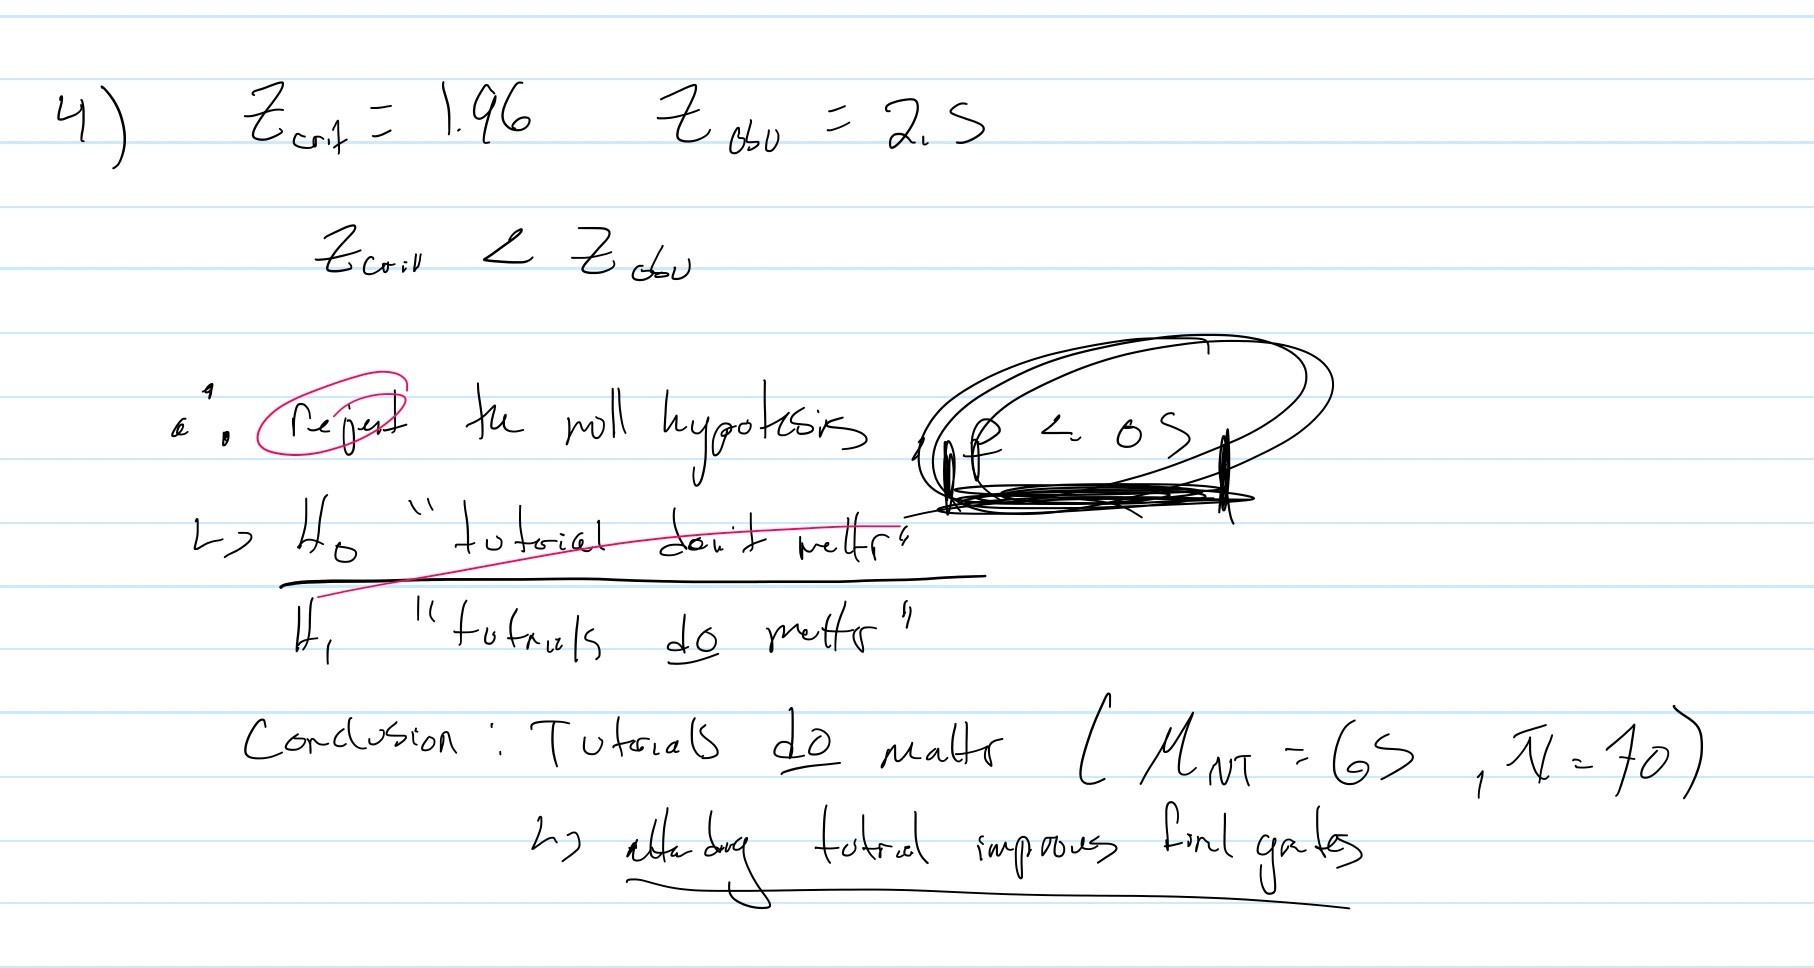 4) Zcrit = 1.96 Zobv = 2.5
Zcrit < Zobv
∴ reject the null hypothesis, p < .05
↳ H0 "tutorial don't matter"
H1 "tutorials do matter"
Conclusion: Tutorials do matter (μNT = 65, x̄ = 70)
↳ attending tutorial improves final grades